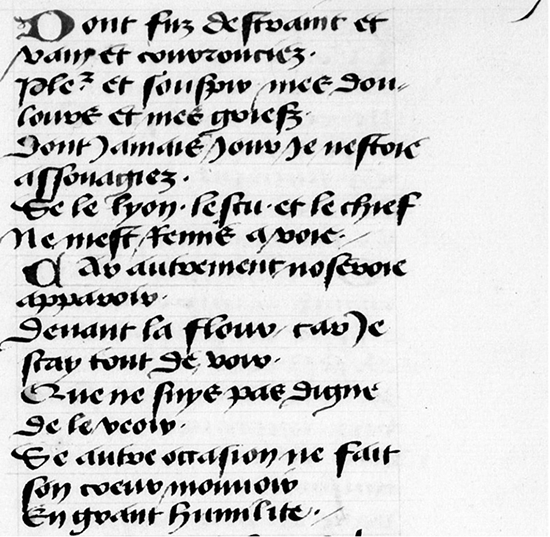 Dont fuz destraint et
vain et couvrouciez.
Ple? et souspir mes dou-
lours et mes griefz.
Dont Jamais Jour Je nestoie
assouagiez.
Se le lyon. lescu. et le chief
Ne mest Renne a voie.
Car autrement noseroie
apparoir.
Devant la flour car Je
scay tout de voir.
Que ne suys pas digne
de le veoir.
Se autre occasion ne fait
son coeur mouvoir
En grant humilite.